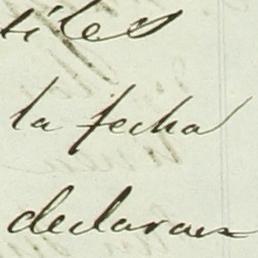 tiles
la fecha
declaran